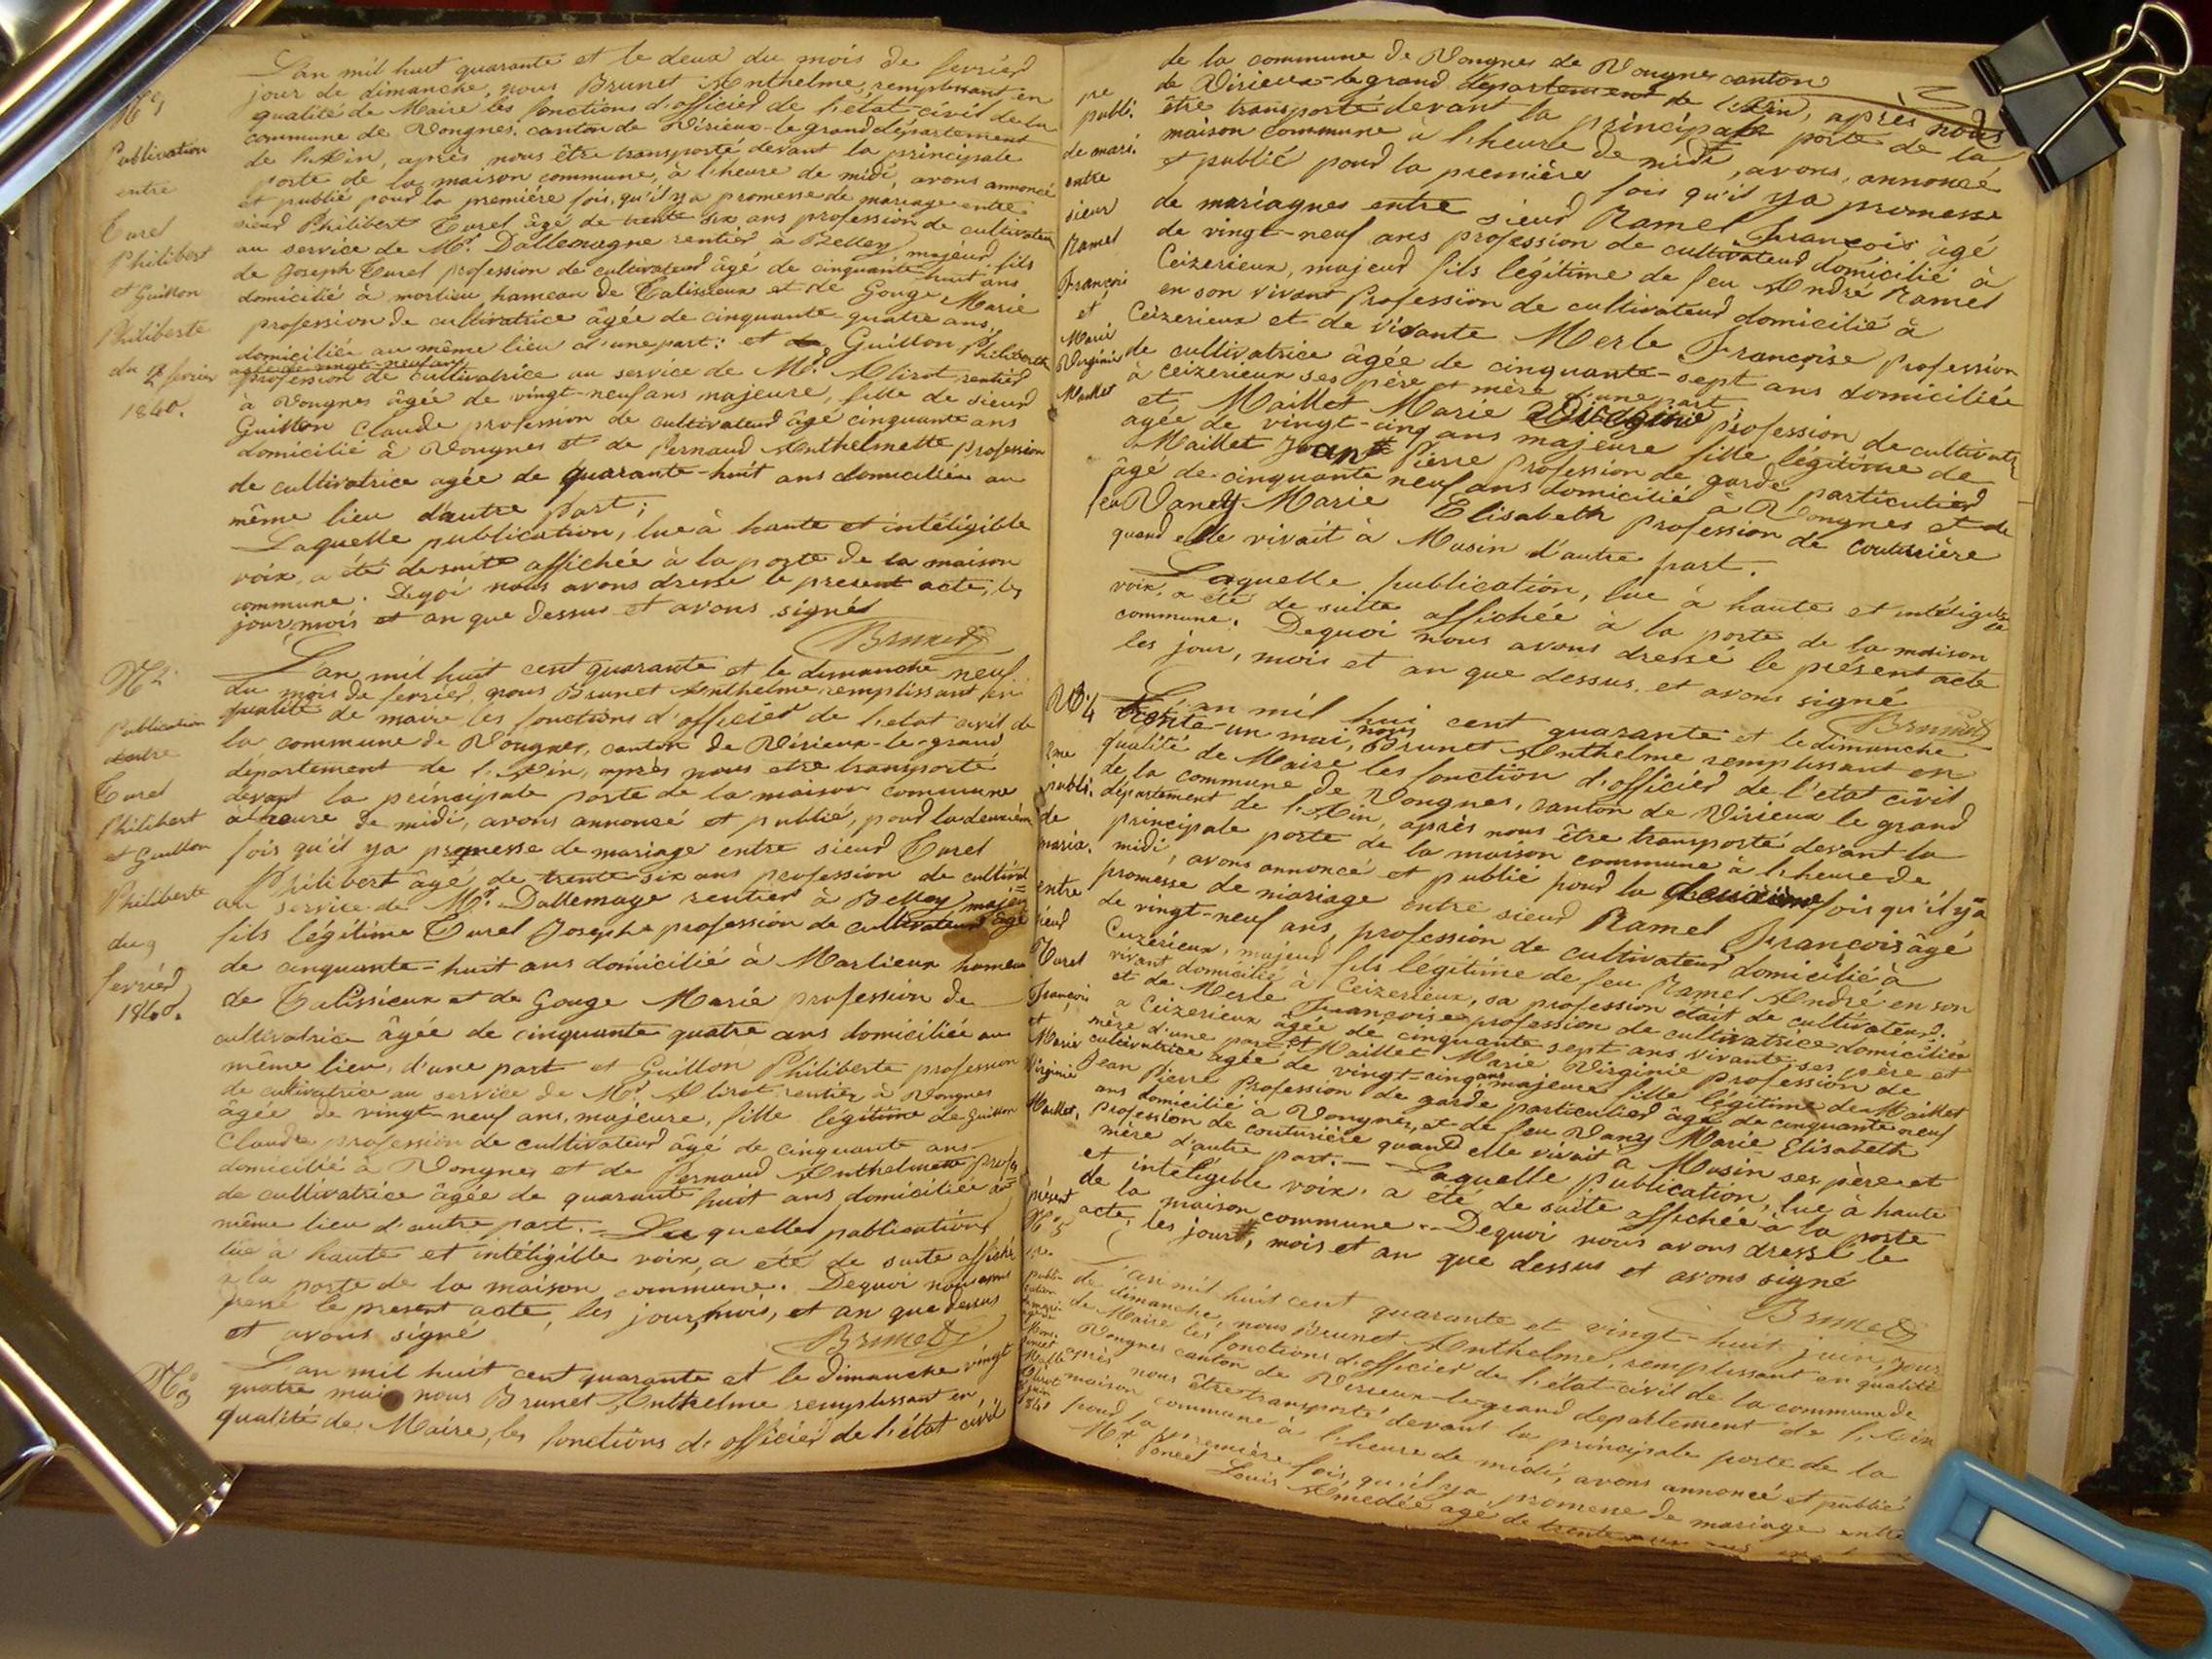 L'an mil huit quarante et le deux du mois de fevrier
jour de dimanche, nous Brunet Anthelme, remplissant en
qualité de Maire les fonctions d'officier de l'état civil de la
commune de Vongnes, canton de Virieux-le-grand département
de l'Ain, après nous être transporté devant la principale
porte de la maison commune, à l'heure de midi, avons annoncé
et publié pour la première fois, qu'il y a promesse de mariage entre
sieur Philibert Turel âgé de trente six ans profession de cultivateur
au service de Mr. Dallemagne rentier à Belley, majeur, fils
de Joseph Turel profession de cultivateur âgé de cinquante huit ans
domicilié à morlieu hameau de Talissieux et de Gouge Marie
profession de cultivatrice âgée de cinquante-quatre ans,
domiciliée au même lieu d'une part: et Guillon Philiberte
agée de vingt-neuf ans
profession de cultivatrice au service de Mr. rentier
à Vongnes âgée de vingt-neuf ans majeure, fille de sieur
Guillon Claude profession de cultivateur âgé cinquante ans
domicilié à Vongnes et de Pernaud Anthelmette profession
de cultivatrice agée de quarante-huit ans domiciliée au
même lieu d'autre part;
Laquelle publication, lue à haute et intéligible
voix, a été desuite affichée à la porte de la maison
commune. Dequoi nous avons dressé le present acte, les
jour, mois et an que dessus et avons signés
Brunet
Publication
entre
Turel
Philibert
et Guillon
Philiberte
du 2 fevrier
1840.
N°2
L'an mil huit cent quarante et le dimanche neuf
du mois de fevrier, nous Brunet Anthelme remplissant en
qualité de maire les fonctions d'officier de l'etat civil de
la commune de Vongnes, canton de Virieux-le-grand
département de l'Ain, après nous etre transporté
devant la principale porte de la maison commune
à heure de midi, avons annoncé et publié, pour la deuxième
fois qu'il y a promesse de mariage entre sieur Turel
Philibert âgé de trente-six ans profession de cultivat
au service de Mr. Dallemage rentier à Belley, majeur
fils légitime Turel Josephe profession de cultivateur âgé
de cinquante-huit ans domicilié à Marlieux hameau
de Talissieux et de Gouge Marie profession de
cultivatrice âgée de cinquante quatre ans domiciliée au
même lieu, d'une part et Guillon Philiberte profession
de cultivatrice au service de Mr. rentier à Vongnes
âgée de vingt-neuf ans, majeure, fille légitime de Guillon
Claude profession de cultivateur âgé de cinquante ans
domicilié à Vongnes et de Pernaud Anthelmette profes
de cultivatrice âgée de quarante huit ans domiciliée au
même lieu d'autre part. - Laquelle publication,
lue à haute et intéligible voix, a été de suite affiché
à la porte de la maison commune. Dequoi nous avons
le present acte, les jour, mois, et an que dessus
et avons signé
Brunet
Publication
entre
Turel
Philibert
et Guillon
Philiberte
du 9
fevrier
1840.
N°3
L'an mil huit cent quarante et le dimanche vingt
quatre mai nous Brunet Anthelme remplissant en
qualité de Maire, les fonctions d'officier de l'état civil
de la commune de Vongnes de Vongnes canton
de Virieux-le-grand département de l'Ain, après nous
être transporté devant la principale porte de la
maison commune à l'heure de midi, avons, annoncé
et publié pour la première fois qu'il y a promesse
de mariages entre sieur Ramel François âgé
de vingt-neuf ans profession de cultivateur domicilié à
Ceizerieux, majeur fils légitime de feu André Ramel
en son vivant Profession de cultivateur domicilié à
Ceizerieux et de vivante Merle Françoise profession
de cultivatrice âgée de cinquante-sept ans domiciliée
à Ceizerieux ses père et mère d'une part
et Maillet Marie Virginie profession de cultivatr
agée de vingt-cinq ans majeure fille légitime de
Maillet Jean Pierre Profession de garde particulier
âgé de cinquante neuf ans domicilié à Vongnes et de
feu Vaney Marie Elisabeth profession de couturière
quand elle vivait à Musin d'autre part.
Laquelle publication, lue à haute et intéligible
voix, a été de suite affichée à la porte de la maison
commune. Dequoi nous avons dressé le présent acte
les jour, mois et an que dessus, et avons signé
Brunet
pre
publi.
de mari.
entre
sieur
Ramel
François
et
Marie
Virginie
Maillet
N°4
L'an mil hui cent quarante et le dimanche
trente-un mai, nous Brunet Anthelme remplissant en
qualité de Maire les fonction d'officier de l'etat civil
de la commune de Vongnes, canton de Virieux le grand
département de l'Ain, après nous être transporté devant la
principale porte de la maison commune à l'heure de
midi, avons annoncé et publié pour la deuxième fois qu'il y a
promesse de mariage entre sieur Ramel François âgé
de vingt-neuf ans, profession de cultivateur domicilié à
Ceizerieux, majeur fils légitime de feu Ramel André en son
vivant domicilié à Ceizerieux, sa profession était de cultivateur.
et de Merle Françoise profession de cultivatrice domiciliée
a Ceizerieux âgée de cinquante sept ans vivante, ses père et
mère d'une part et Maillet Marie Virginie Profession de
cultivatrice agée de vingt-cinq ans majeure fille légitime de Maillet
Jean Pierre Profession de garde particulier âgé de cinquante neuf
ans domicilié à Vongnes, et de feu Vany Marie Elisabeth
profession de couturière quand elle vivait à Musin ses père et
mère d'autre part. - Laquelle publication, lue à haute
et intéligible voix, a été de suite affichée à la porte
de la maison commune. Dequoi nous avons dressé le
présent acte, les jour, mois et an que dessus et avons signé
Brunet
2me
publi.
de
maria.
entre
sieur
Turel
François
et
Marie
Virginie
Maillet.
N°5
L'an mil huit cent quarante et vingt-huit juin, jour
de dimanche, nous Brunet Anthelme, remplissant en qualité
de Maire les fonctions d'officier de l'état-civil de la commune de
Vongnes canton de Virieux-le-grand département de l'Ain
après nous être transporté devant la principale porte de la
maison commune à l'heure de midi, avons annoncé et publié
pour la première fois, qu'il y a promesse de mariage entre
Mr. Poncet Louis Amedée agé de trente